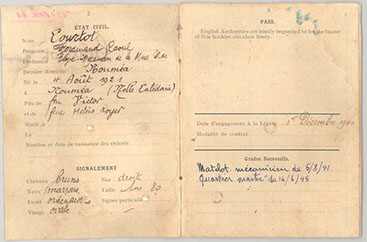 ÉTAT CIVIL.
Nom Courtot
Prénoms Fernand Raoul
Profession
Dernier domicile Nouméa
Né le 4 Août 1921
à Nouméa (Nelle Calédonie)
Fils de feu Victor
et de feue Hélène Royer
Marié à
Le
Nombre et date de naissance des enfants
SIGNALEMENT
Cheveux bruns Nez droit
Yeux marrons Taille 1m 80
Front ordinaire Signes particuliers
Visage ovale
PASS.
English Authorities are kindly requested to let the bearer
of this booklet circulate freely.
Date d'engagement à la Légion 1er Décembre
Modalité de contrat
Grades Successifs.
Matelot mécanicien du 5/8/41
Quartier maître du 16/6/45